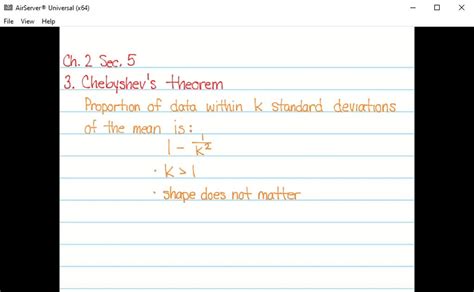 AirServer® Universal (x64)
File View Help
Ch. 2 Sec. 5
3. Chebyshev's theorem
Proportion of data within k standard deviations
of the mean is:
1 - 1/k²
· k > 1
· shape does not matter